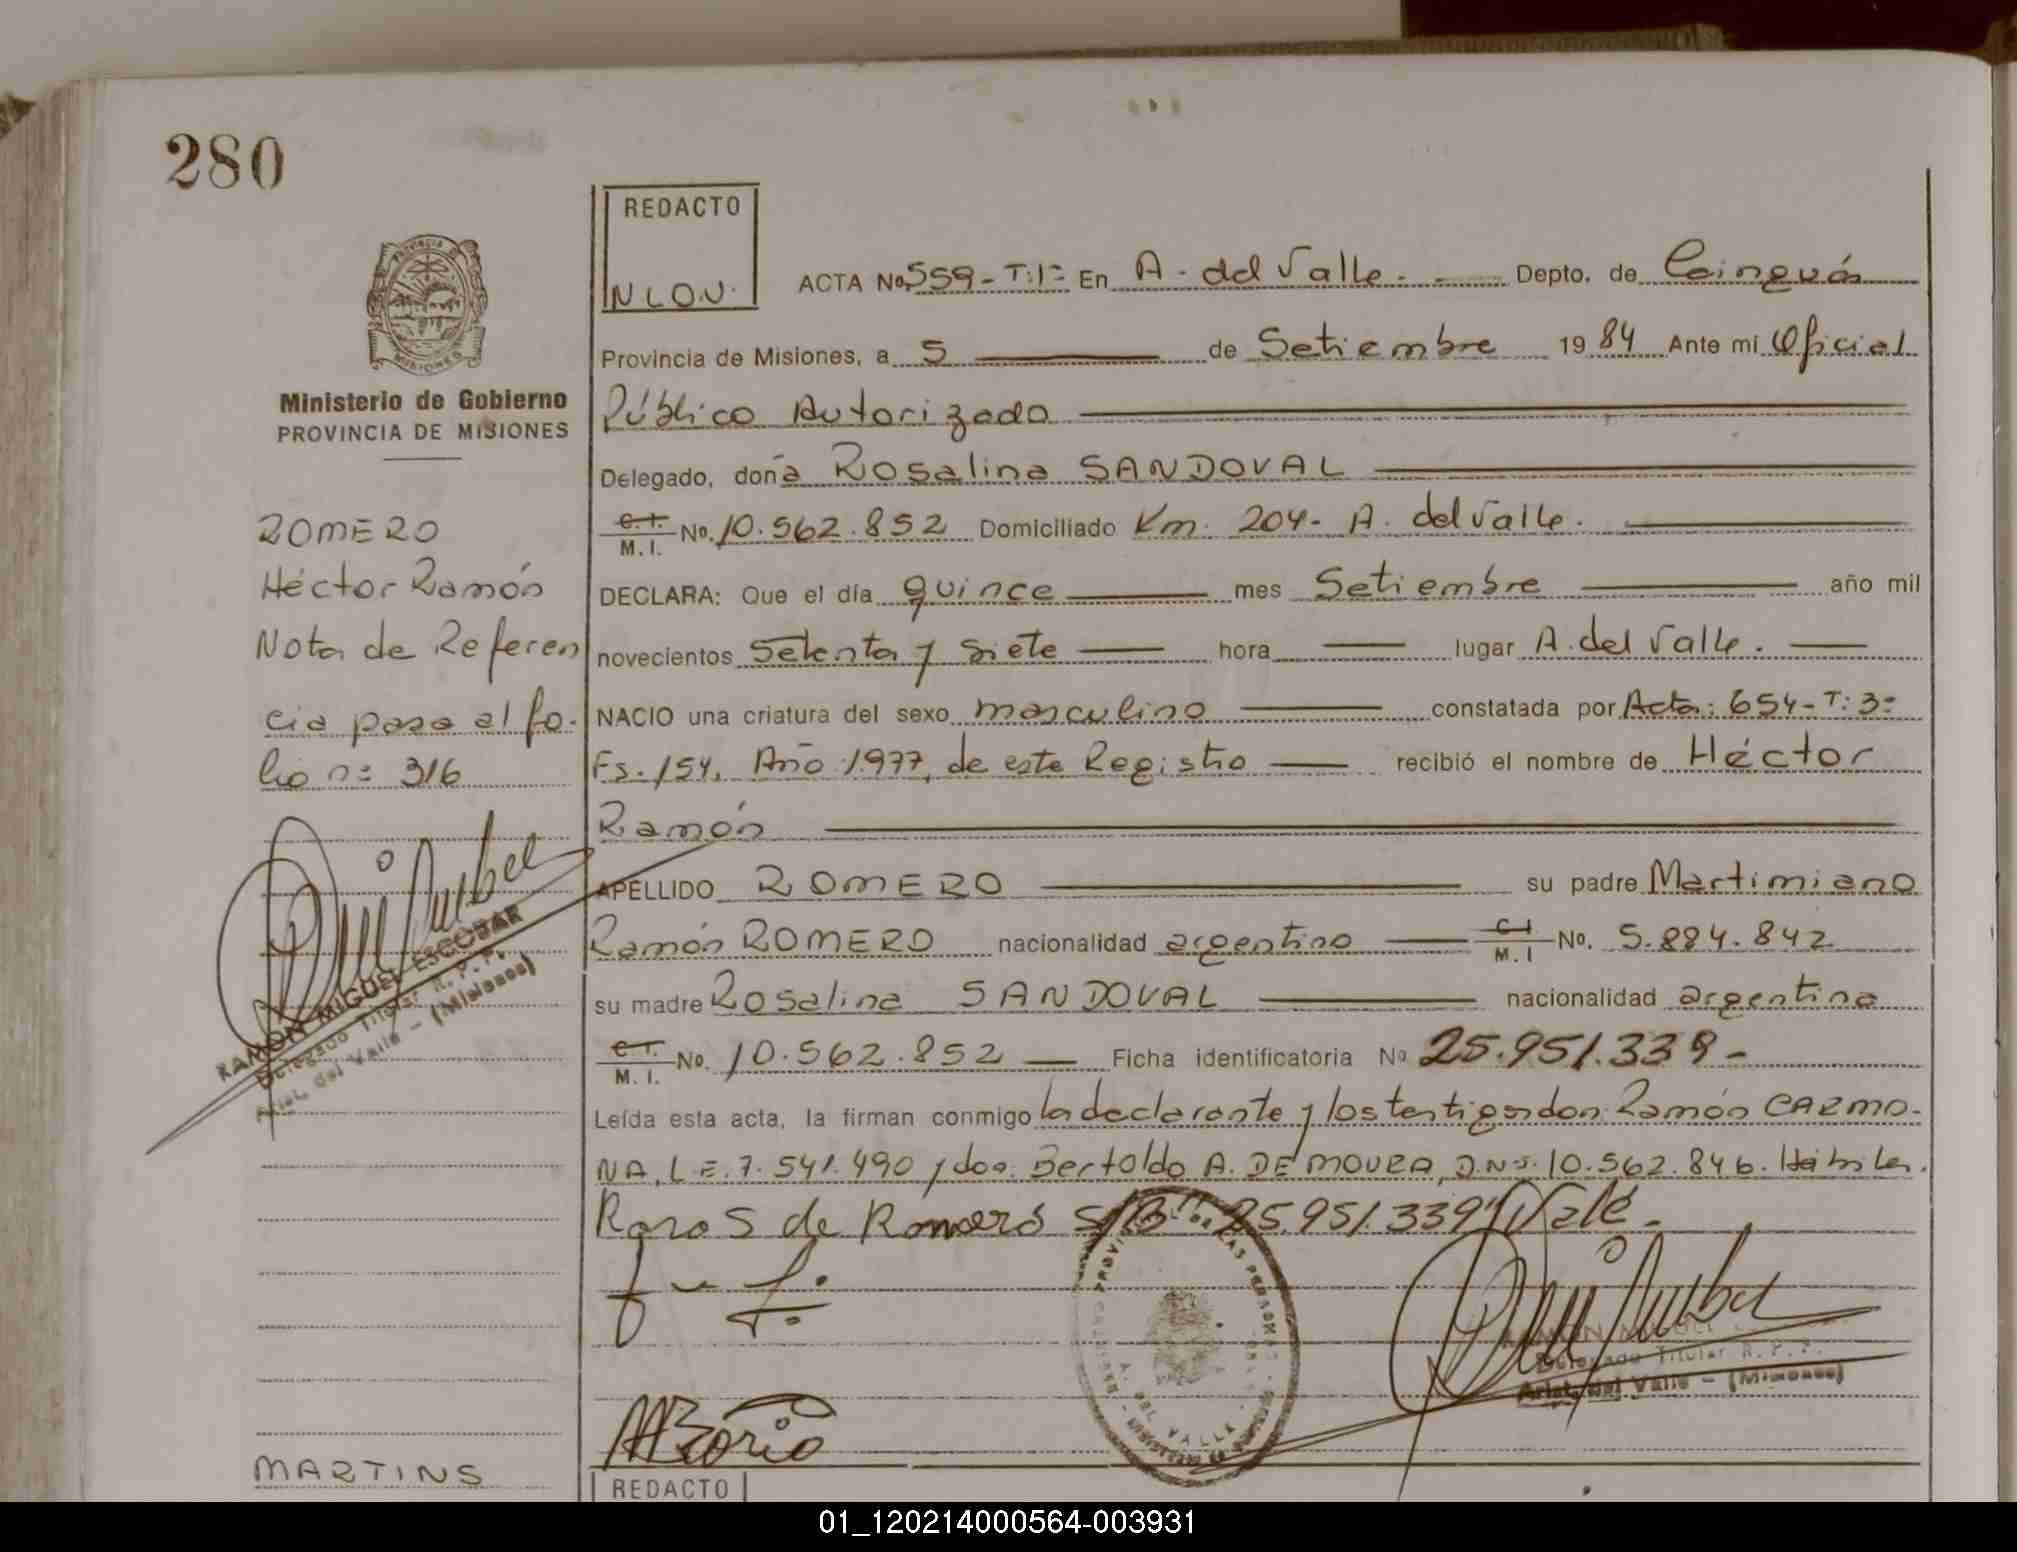 280
REDACTO
NLOU.
ACTA No. 559 - T: 1º En A. del Valle. Depto. de Cainguás
Provincia de Misiones, a 5 de Setiembre 1984 Ante mi Oficial
Público Autorizado
Delegado, doña Rosalina SANDOVAL
C.I. M.I. No. 10.562.852 Domiciliado Km. 204 - A. del Valle.
DECLARA: Que el día quince mes Setiembre año mil
novecientos Setenta y Siete hora lugar A. del Valle.
NACIO una criatura del sexo masculino constatada por Acta: 654 - T: 3º
Fs. 154, Año 1.977, de este Registro recibió el nombre de Héctor
Ramón
APELLIDO ROMERO su padre Martimiano
Ramón ROMERO nacionalidad argentino C.I M.I No. 5.884.842
su madre Rosalina SANDOVAL nacionalidad argentina
C.I. M.I. No. 10.562.852 Ficha identificatoria No 25.951.339 -
Leída esta acta, la firman conmigo la declarante y los testigos don: Ramón CARMO-
NA, L.E. 7.541.490 y don: Bertoldo A. DE MOURA, D.N.I. 10.562.846. Hábiles.
25.951.339 Vale.
Ministerio de Gobierno
PROVINCIA DE MISIONES
ROMERO
Héctor Ramón
Nota de Referen
cia pasa al fo-
lio nº 316
RAMON MIGUEL ESCOBAR
Delegado Titular R. P. P.
Arist. del Valle - (Misiones)
Delegado Titular R. P. P.
Arist. del Valle - (Misiones)
A. DEL VALLE
MARTINS
REDACTO
01_120214000564-003931